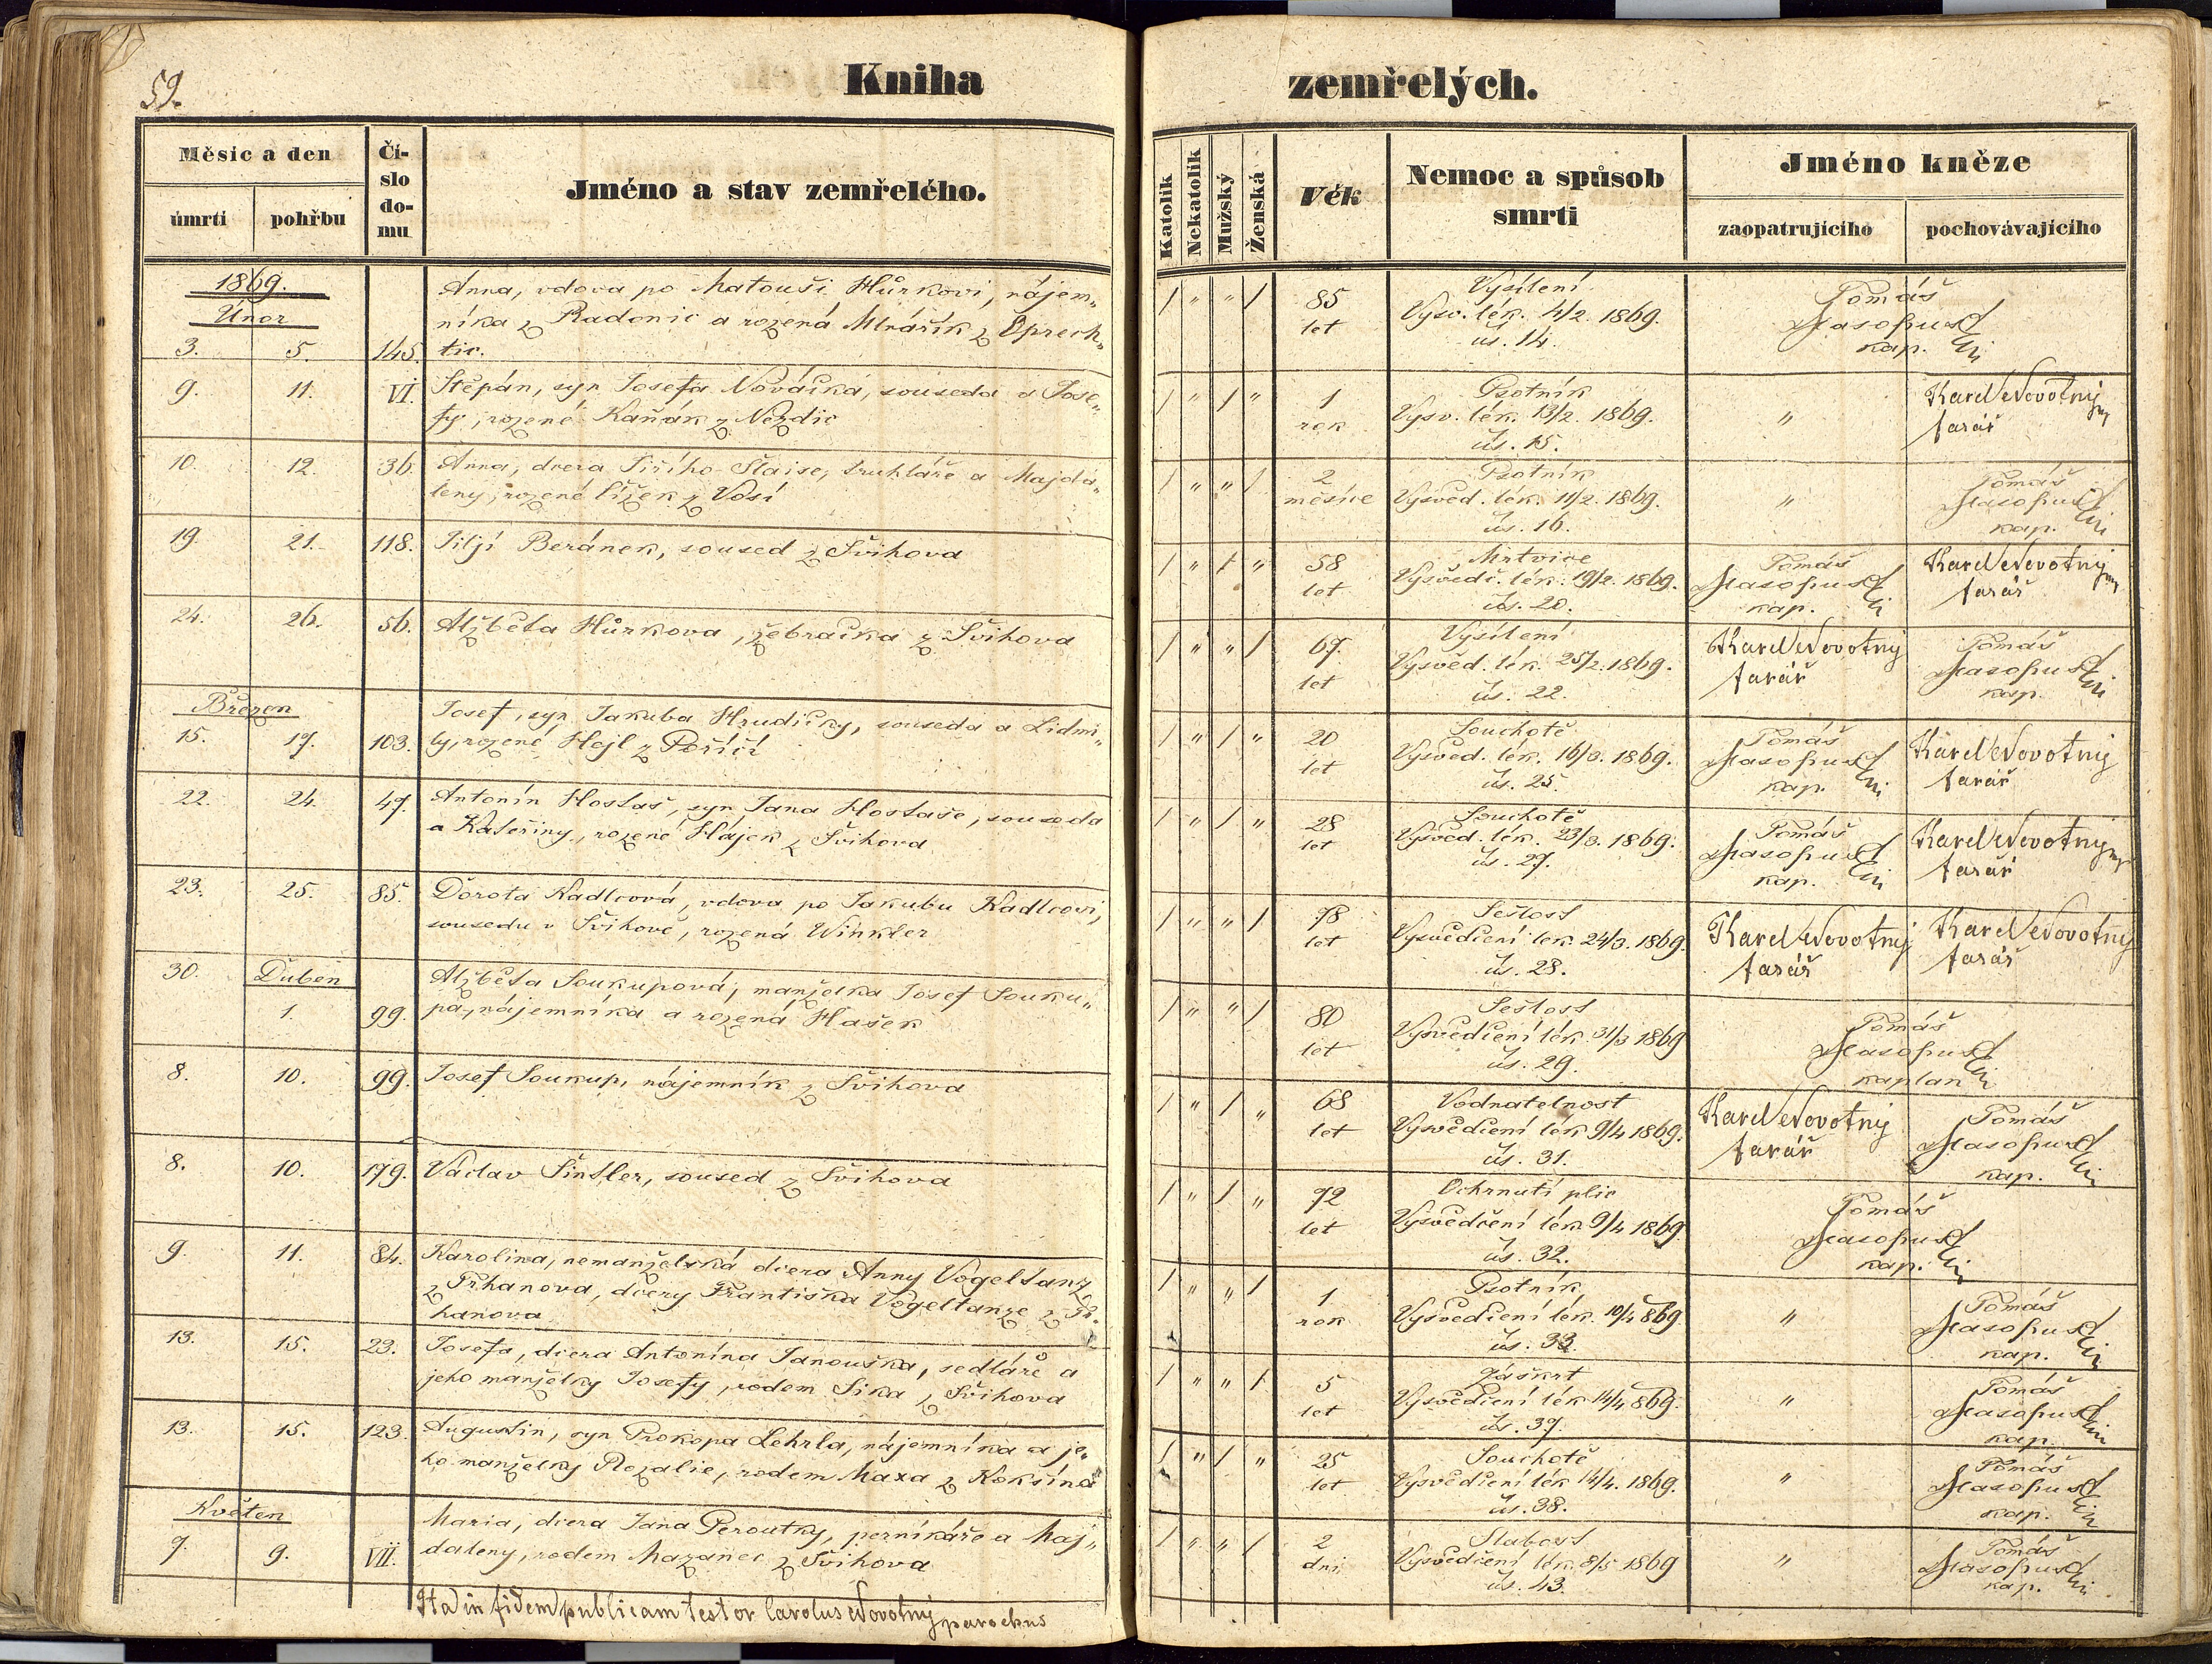 59.
Kniha zemřelých.
Měsíc a den
úmrtí pohřbu
Čí-
slo
do-
mu
Jméno a stav zemřelého.
Katolík
Nekatolík
Mužský
Ženská
Věk
Nemoc a spůsob
smrti
Jméno kněze
zaopatrujícího pochovávajícího
1869.
Únor
3. 5. 145.
Anna, vdova po Matouši Hůrkovi, nájem„
níka z Radonic a rozená Mlnářík z Oprech„
tic.
/ „ „ / 85
let
Vysílení
Vysv. lék. 4/2. 1869.
čís. 14.
Tomáš
Masopust
kap.
9. 11. VI.
Štěpán, syn Josefa Nováčka, souseda a Jose„
fy, rozené Kaňák z Nezdic
/ „ / „ 1
rok
Psotník
Vysv. lék. 13/2. 1869.
čís. 15.
„
Karel Novotný
farář
10. 12. 36.
Anna, dcera Jiřího Štaise, truhláře a Majda„
leny, rozené Čížek z Vosí
/ „ „ / 2
měsíce
Psotník
Vysvěd. lék. 11/2. 1869.
čís. 16.
„
Tomáš
Masopust
kap.
19. 21. 118.
Jiljí Beránek, soused z Švihova
/ „ / „ 58
let
Mrtvice
Vysvědč. lék. 19/2. 1869.
čís. 20.
Tomáš
Masopust
kap.
Karel Novotný
farář
24. 26. 56.
Alžběta Hůrkova, žebračka z Švihova
/ „ „ / 67
let
Vysílení
Vysvěd. lék. 25/2. 1869.
čís. 22.
Karel Novotný
farář
Tomáš
Masopust
kap.
Březen
15. 17. 103.
Josef, syn Jakuba Hrudičky, souseda a Lidmi„
ly, rozené Hejl z Poříčí
/ „ / „ 20
let
Souchotě
Vysvěd. lék. 16/3. 1869.
čís. 25.
Tomáš
Masopust
kap.
Karel Novotný
farář
22. 24. 47.
Antonín Hostaš, syn Jana Hostaše, souseda
a Kateřiny, rozené Hájek z Švihova
/ „ / „ 28
let
Souchotě
Vysvěd. lék. 23/3. 1869.
čís. 27.
Tomáš
Masopust
kap.
Karel Novotný
farář
23. 25. 85.
Dorota Kadlcová, vdova po Jakubu Kadlcovi,
sousedu v Švihově, rozená Winkler
/ „ „ / 78
let
Sešlost
Vysvědčení lék. 24/3. 1869.
čís. 28.
Karel Novotný
farář
Karel Novotný
farář
30. Duben
1. 99.
Alžběta Soukupová, manželka Josef Souku„
pa, nájemníka a rozená Hašek
/ „ „ / 80
let
Sešlost
Vysvědčení lék. 31/3 1869
čís. 29.
Tomáš
Masopust
kaplan
8. 10. 99.
Josef Soukup, nájemník z Švihova
/ „ / „ 68
let
Vodnatelnost
Vysvědčení lék 9/4 1869.
čís. 31.
Karel Novotný
farář
Tomáš
Masopust
kap.
8. 10. 179.
Václav Šintler, soused z Švihova
/ „ / „ 72
let
Ochrnutí plic
Vysvědčení lék 9/4 1869.
čís. 32.
Tomáš
Masopust
kap.
9. 11. 84.
Karolina, nemanželská dcera Anny Vogeltanz
z Trhanova, dcery Františka Vogeltanze z Tr.
hanova
/ „ „ / 1
rok
Psotník
Vysvědčení lék. 10/4 869.
čís. 33.
„
Tomáš
Masopust
kap.
13. 15. 23.
Josefa, dcera Antonína Janouška, sedláře a
jeho manželky Josefy, rodem Sika z Švihova
/ „ „ / 5
let
Záškrt
Vysvědčení lék 14/4 869.
čís. 37.
„
Tomáš
Masopust
kap.
13. 15. 123.
Augustin, syn Prokopa Lehrla, nájemníka a je„
ho manželky Rozalie, rodem Maxa z Kokšína
/ „ / „ 25
let
Souchotě
Vysvědčení lék 14/4. 1869.
čís. 38.
„
Tomáš
Masopust
kap.
Květen
7. 9. VII.
Maria, dcera Jana Peroutky, perníkáře a Maj„
daleny, rodem Mazanec z Švihova
/ „ „ / 2
dni
Slabost
Vysvědčení lék. 8/5 1869
čís. 43.
„
Tomáš
Masopust
kap.
Ita in fidem publicam testor Carolus Novotný parochus